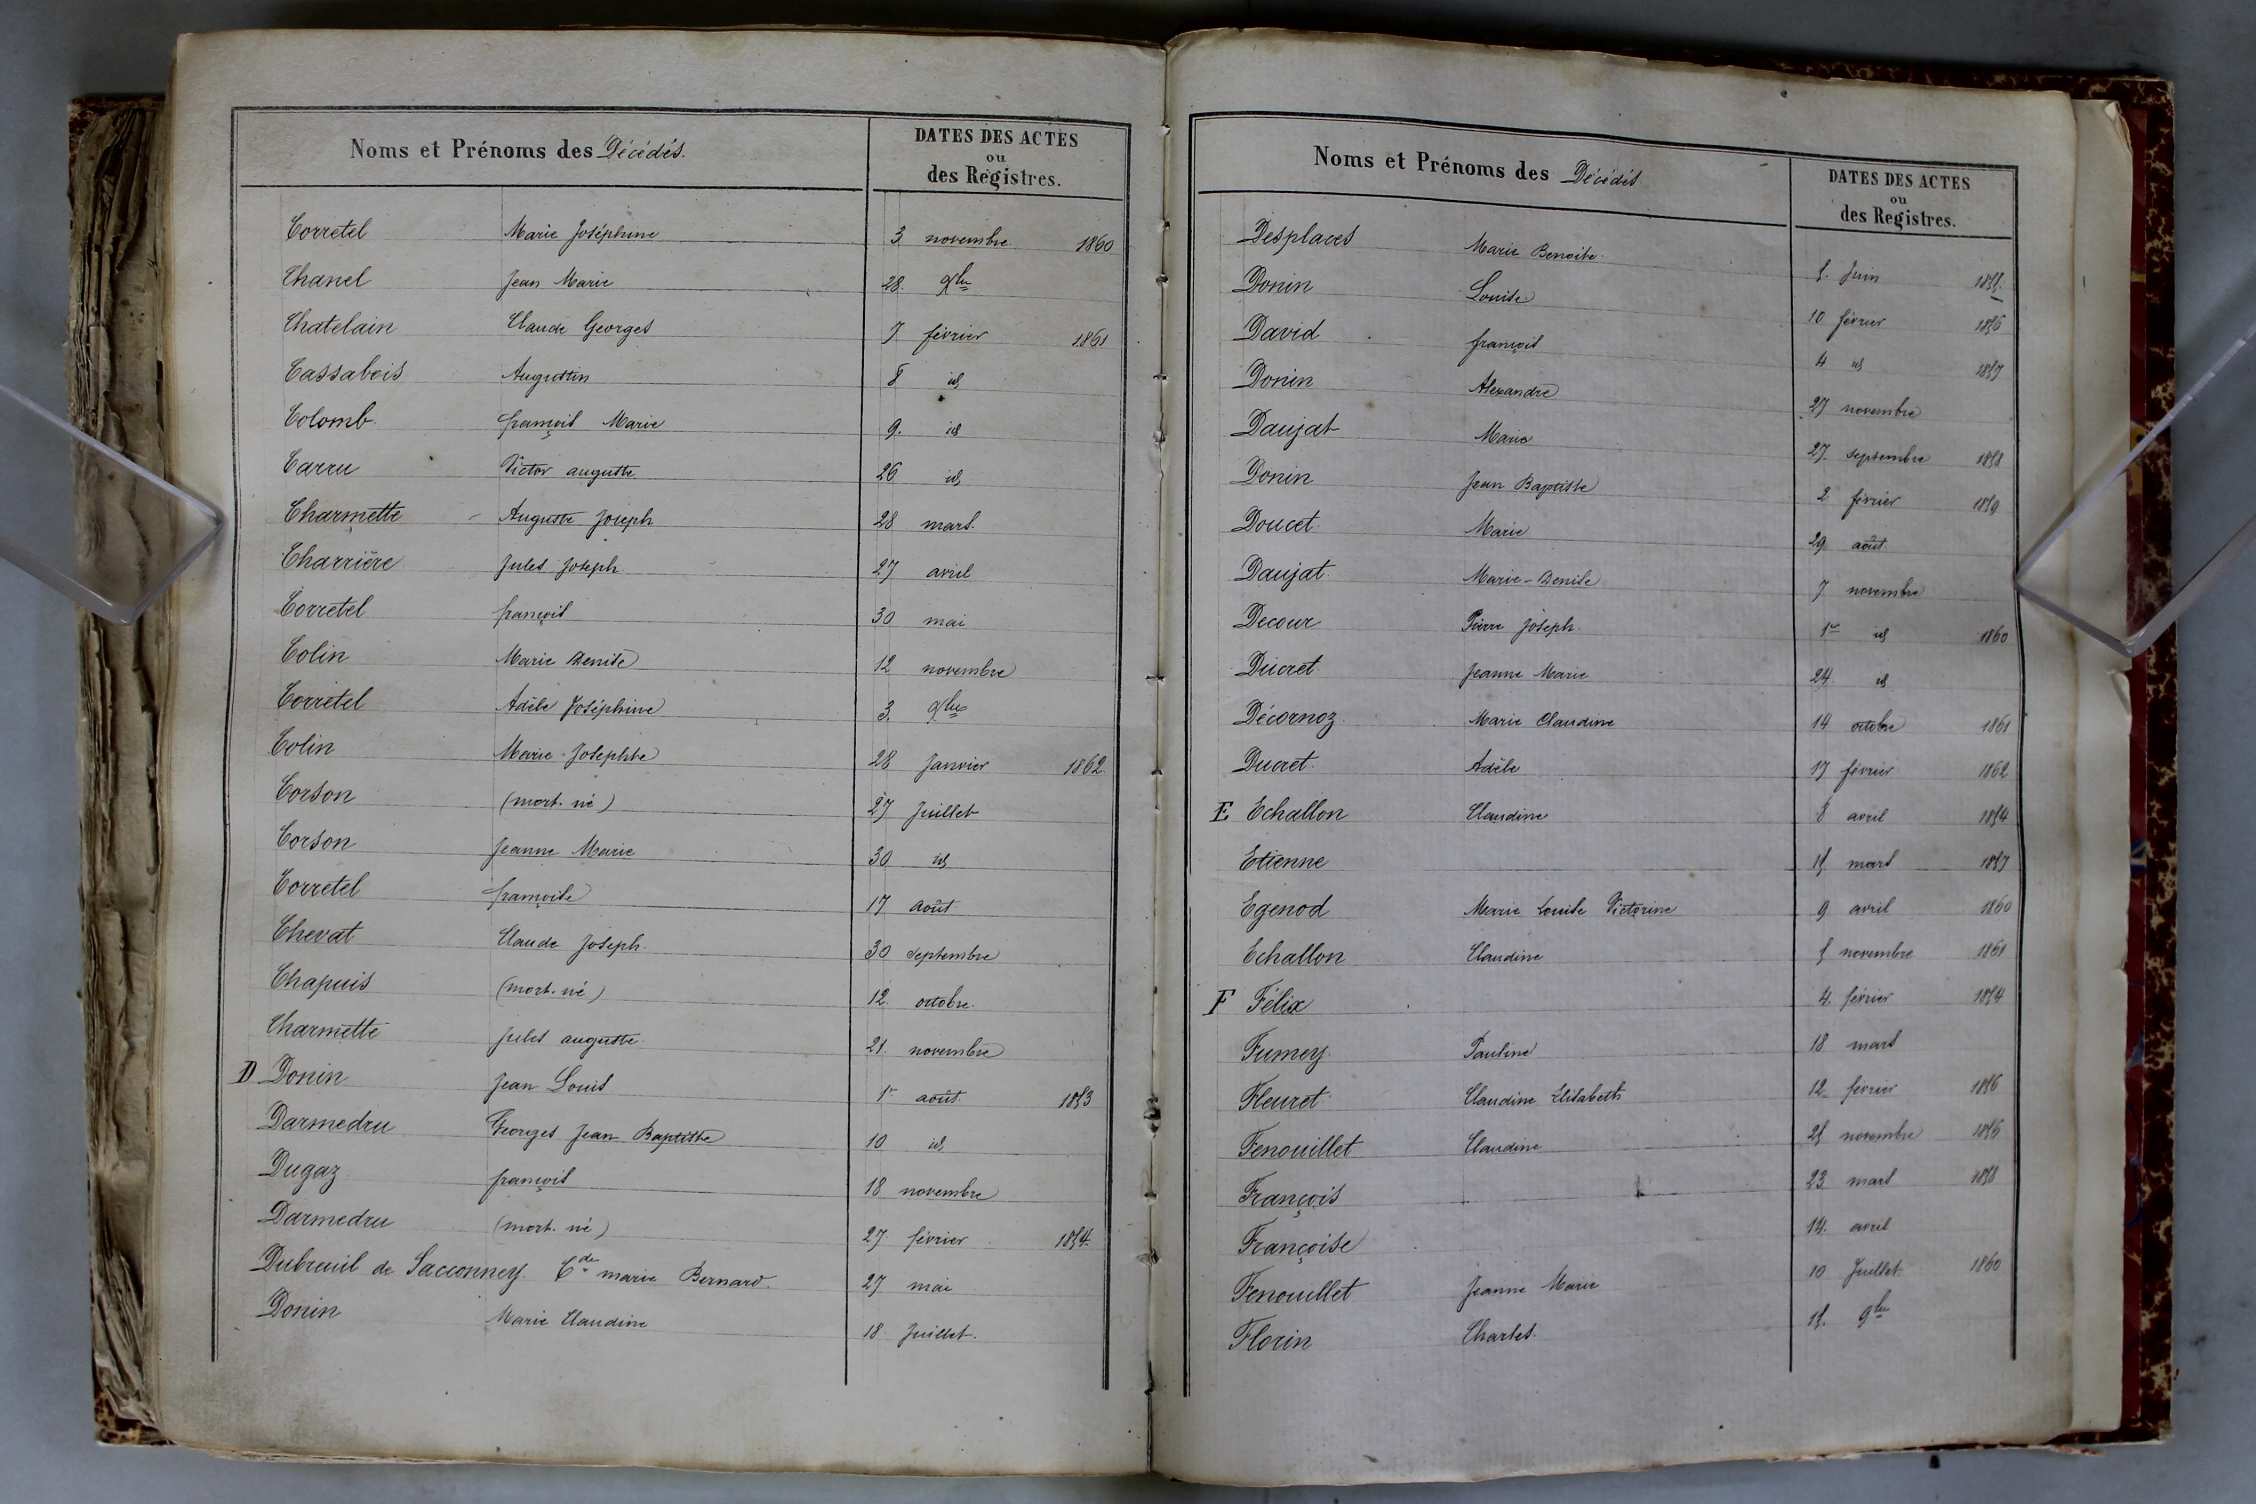 Noms et Prénoms des Décédés.
DATES DES ACTES
ou
des Registres.
Corretel Marie Joséphine 3 novembre 1860
Chanel Jean Marie 28. Xbre
Chatelain Claude Georges 7 février 1861
Cassabois Augustin 8 id
Colomb françois Marie 9. id
Carru Victor auguste 26 id
Charmette Auguste Joseph 28 mars.
Charrière Jules Joseph 27 avril
Corretel françois 30 mai
Colin Marie Denise 12 novembre
Corretel Adèle Joséphine 3. Xbre
Colin Marie Josephte 28 Janvier 1862
Corson (mort. né) 27 Juillet
Corson Jeanne Marie 30 id
Corretel françoise 17 Août
Chevat Claude Joseph. 30 septembre
Chapuis (mort. né) 12. octobre.
Charmette Jules auguste 21. novembre
D Donin Jean Louis 1r août 1853
Darmedru Georges Jean Baptiste 10 id
Dugaz françois 18 novembre
Darmedru (mort. né) 27 février 1854.
Dubreuil de Sacconney. Cde marie Bernard. 27 mai
Donin Marie Claudine 18 Juillet.
Noms et Prénoms des Décédés
DATES DES ACTES
ou
des Registres.
Desplaces Marie Benoite. 5. Juin 1855.
Donin Louise 10 février 1856
David françois 4 id 1857
Donin Alexandre 27 novembre
Daujat Marie 27. septembre 1858
Donin Jean Baptiste 2 février 1859
Doucet Marie 29 août
Daujat Marie-Denise 7 novembre
Decour Pierre Joseph. 1er id 1860
Ducret Jeanne Marie 24. id
Décornoz Marie Claudine 14 octobre 1861
Ducret Adèle 17 février 1862
E Echallon Claudine 8 avril 1854
Etienne 15 mars 1857
Egenod Marie Louise Victorine 9 avril 1860
Echallon Claudine 5 novembre 1861
F Félix 4. février 1854
Fumey Pauline 18 mars
Fleuret Claudine Elisabeth 12 février 1856
Fenouillet Claudine 25 novembre 1856
François 23 mars 1858
Françoise 14. avril
Fenouillet Jeanne Marie 10 Juillet 1860
Florin Charles. 15. 9bre